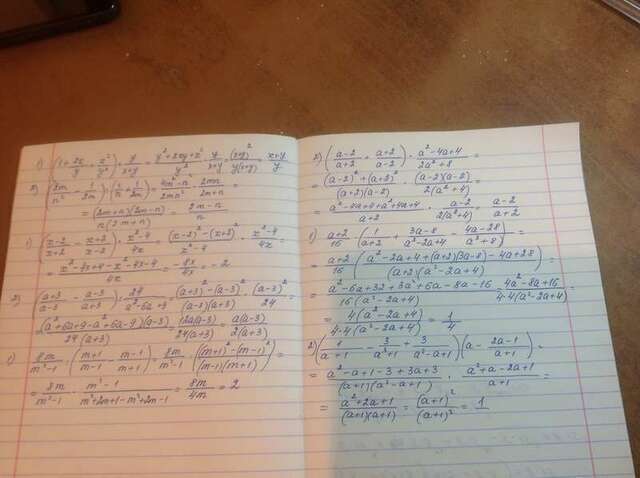 1) (1 + 2x/y + x²/y²) · y/(x+y) = (y²+2xy+x²)/y² · y/(x+y) = (x+y)²/(y(x+y)) = (x+y)/y
2) (2m/n² - 1/2m) : (1/n + 1/2m) = (4m²-n²)/2mn² · 2mn/(2m+n) =
= (2m+n)(2m-n)/(n(2m+n)) = (2m-n)/n
1) ((x-2)/(x+2) - (x+2)/(x-2)) · (x²-4)/4x = ((x-2)²-(x+2)²)/(x²-4) · (x²-4)/4x =
= (x²-4x+4-x²-4x-4)/4x = -8x/4x = -2
2) ((a+3)/(a-3) - (a-3)/(a+3)) : 24/(a²-6a+9) = ((a+3)²-(a-3)²)/((a-3)(a+3)) · (a-3)²/24 =
= (a²+6a+9-a²+6a-9)(a-3)/(24(a+3)) = 12a(a-3)/(24(a+3)) = a(a-3)/(2(a+3))
1) 8m/(m²-1) : ((m+1)/(m-1) - (m-1)/(m+1)) = 8m/(m²-1) : ((m+1)²-(m-1)²)/((m-1)(m+1)) =
= 8m/(m²-1) · (m²-1)/(m²+2m+1-m²+2m-1) = 8m/4m = 2
2) ((a-2)/(a+2) + (a+2)/(a-2)) · (a²-4a+4)/(2a²+8) =
= ((a-2)²+(a+2)²)/((a+2)(a-2)) · (a-2)(a-2)/(2(a²+4)) =
= (a²-4a+4+a²+4a+4)/(a+2) · (a-2)/(2(a²+4)) = (a-2)/(a+2)
1) (a+2)/16 · (1/(a+2) + (3a-8)/(a²-2a+4) - (4a-28)/(a³+8)) =
= (a+2)/16 · ((a²-2a+4+(a+2)(3a-8)-4a+28)/((a+2)(a²-2a+4))) =
= (a²-6a+32+3a²+6a-8a-16)/(16(a²-2a+4)) = (4a²-8a+16)/(4·4(a²-2a+4)) =
= 4(a²-2a+4)/(4·4(a²-2a+4)) = 1/4
2) (1/(a+1) - 3/(a³+1) + 3/(a²-a+1)) · (a - (2a-1)/(a+1)) =
= (a²-a+1-3+3a+3)/((a+1)(a²-a+1)) · (a²+a-2a+1)/(a+1) =
= (a²+2a+1)/((a+1)(a+1)) = (a+1)²/(a+1)² = 1